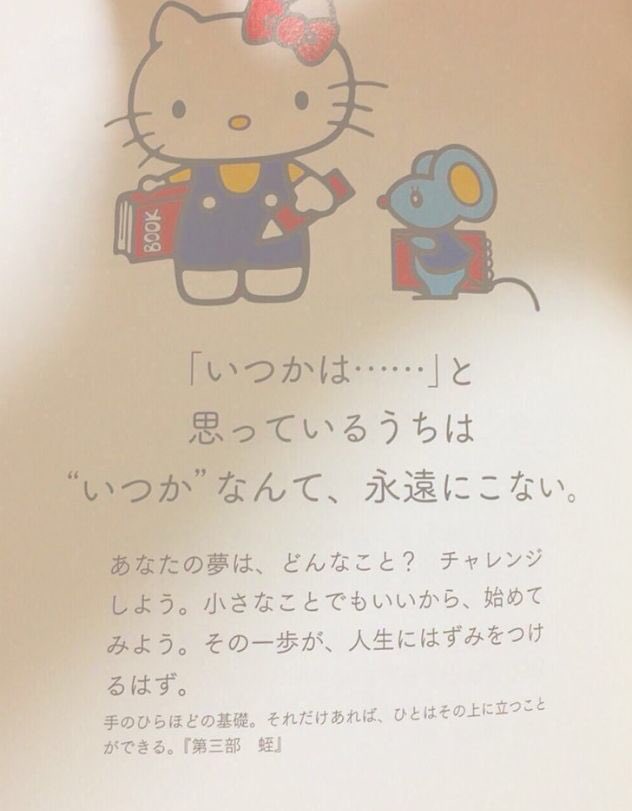 BOOK
「いつかは……」と
思っているうちは
“いつか”なんて、永遠にこない。
あなたの夢は、どんなこと？　チャレンジ
しよう。小さなことでもいいから、始めて
みよう。その一歩が、人生にはずみをつけ
るはず。
手のひらほどの基礎。それだけあれば、ひとはその上に立つこと
ができる。『第三部　蛭』